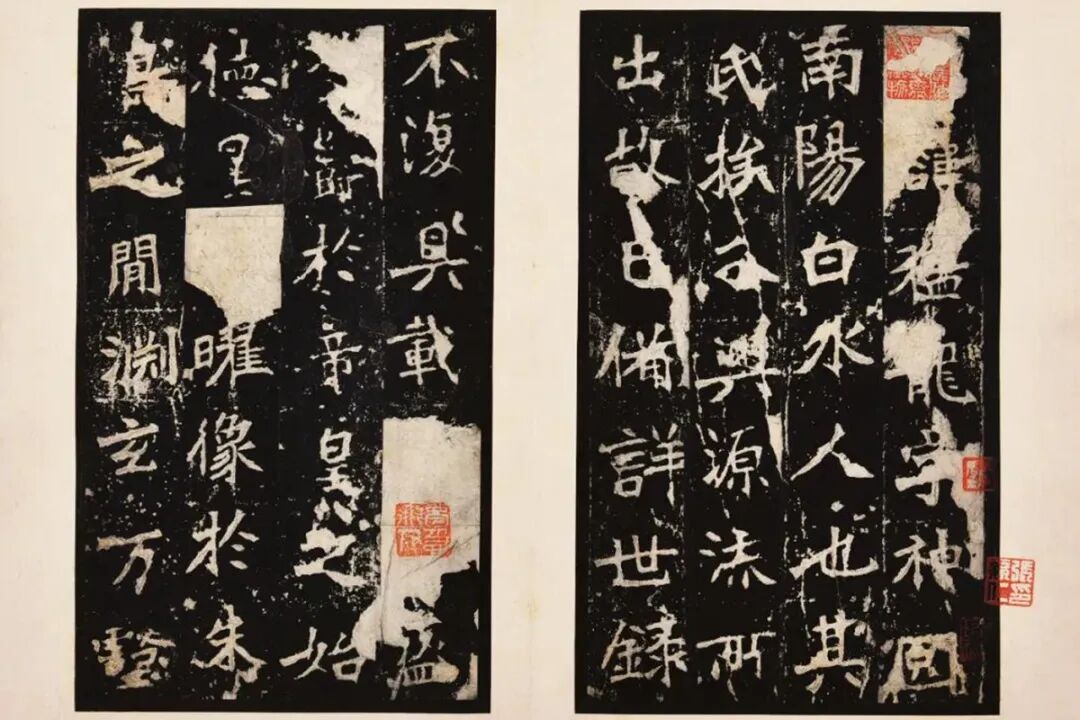 諱猛龍字神囧
南陽白水人也其
氏族分興源流所
出故已備詳世錄
不復具載
於帝皇之始
德星曜像於朱
鳥之閒淵玄万壑